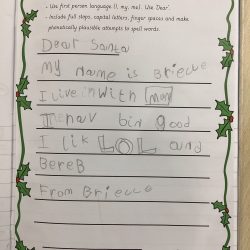 - Use first person language (I, my, me). Use 'Dear'.
- Include full stops, capital letters, finger spaces and make
phonetically plausible attempts to spell words.
Dear Santa
My name is Brielle
I live in with
I henav bin good
I lik LOL and
BereB
From Brielle